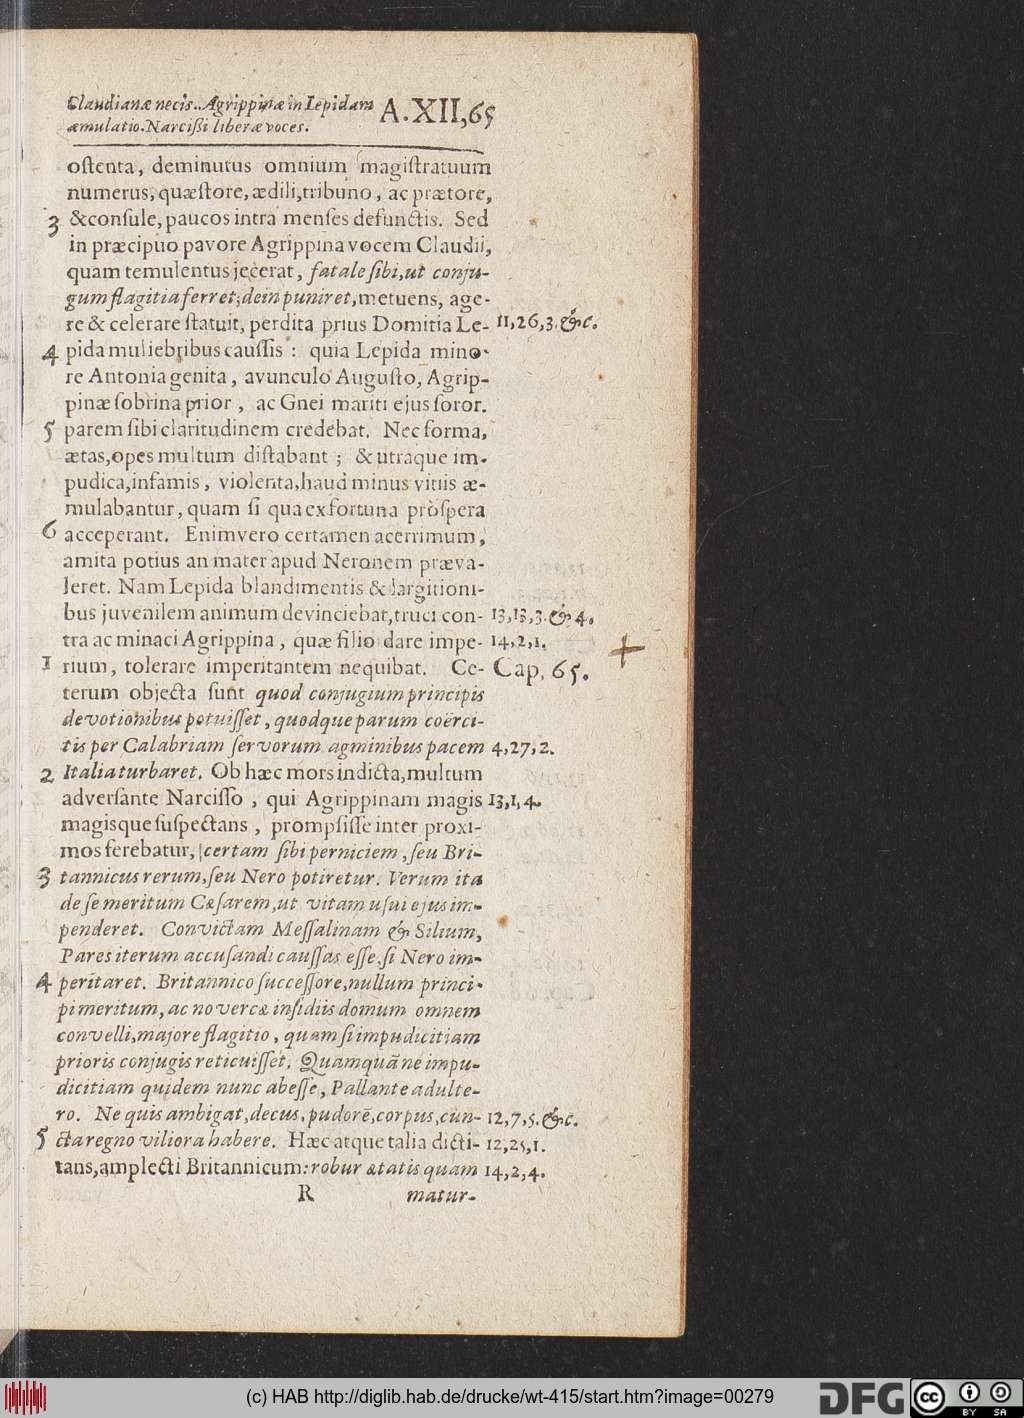 Claudianæ necis. Agrippinæ in Lepidam
æmulatio. Narcißi liberæ voces.
A. XII, 65
ostenta, deminutus omnium magistratuum
numerus, quæstore, ædili, tribuno, ac prætore,
3 & consule, paucos intra menses defunctis. Sed
in præcipuo pavore Agrippina vocem Claudii,
quam temulentus jecerat, fatale sibi, ut conju-
gum flagitia ferret; dein puniret, metuens, age-
re & celerare statuit, perdita prius Domitia Le- 11, 26, 3. & c.
4 pida muliebribus caussis : quia Lepida mino-
re Antonia genita, avunculo Augusto, Agrip-
pinæ sobrina prior, ac Gnei mariti ejus soror.
5 parem sibi claritudinem credebat. Nec forma,
ætas, opes multum distabant ; & utraque im-
pudica, infamis, violenta, haud minus vitiis æ-
mulabantur, quam si qua ex fortuna prospera
6 acceperant. Enimvero certamen acerrimum,
amita potius an mater apud Neronem præva-
leret. Nam Lepida blandimentis & largitioni-
bus juvenilem animum devinciebat, truci con- 13, 13, 3. & 4.
tra ac minaci Agrippina, quæ filio dare impe- 14, 2, 1.
1 rium, tolerare imperitantem nequibat. Ce- Cap. 65.
terum objecta sunt quod conjugium principis
devotionibus petuisset, quodque parum coërci-
tis per Calabriam servorum agminibus pacem 4, 27, 2.
2 Italia turbaret. Ob hæc mors indicta, multum
adversante Narcisso, qui Agrippinam magis 13, 1, 4.
magisque suspectans, prompsisse inter proxi-
mos ferebatur, certam sibi perniciem, seu Bri-
3 tannicus rerum, seu Nero potiretur. Verum ita
de se meritum Cæsarem, ut vitam usui ejus im-
penderet. Convictam Messalinam & Silium,
Pares iterum accusandi caussas esse. si Nero im-
4 peritaret. Britannico successore, nullum princi-
pi meritum, ac novercæ insidiis domum omnem
convelli, majore flagitio, quam si impudicitiam
prioris conjugis reticuisset. Quamquã ne impu-
dicitiam quidem nunc abesse, Pallante adulte-
ro. Ne quis ambigat, decus, pudorẽ, corpus, cun- 12, 7, 5. & c.
5 cta regno viliora habere. Hæc atque talia dicti- 12, 25, 1.
tans, amplecti Britannicum: robur ætatis quam 14, 2, 4.
R matur-
(c) HAB http://diglib.hab.de/drucke/wt-415/start.htm?image=00279
DFG
cc BY SA